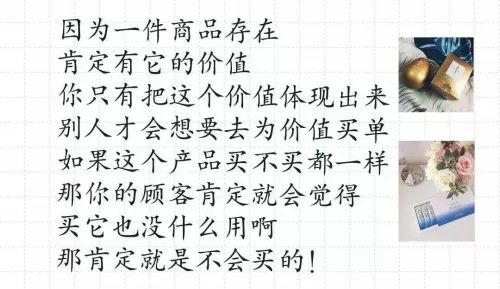 因为一件商品存在
肯定有它的价值
你只有把这个价值体现出来
别人才会想要去为价值买单
如果这个产品买不买都一样
那你的顾客肯定就会觉得
买它也没什么用啊
那肯定就是不会买的!